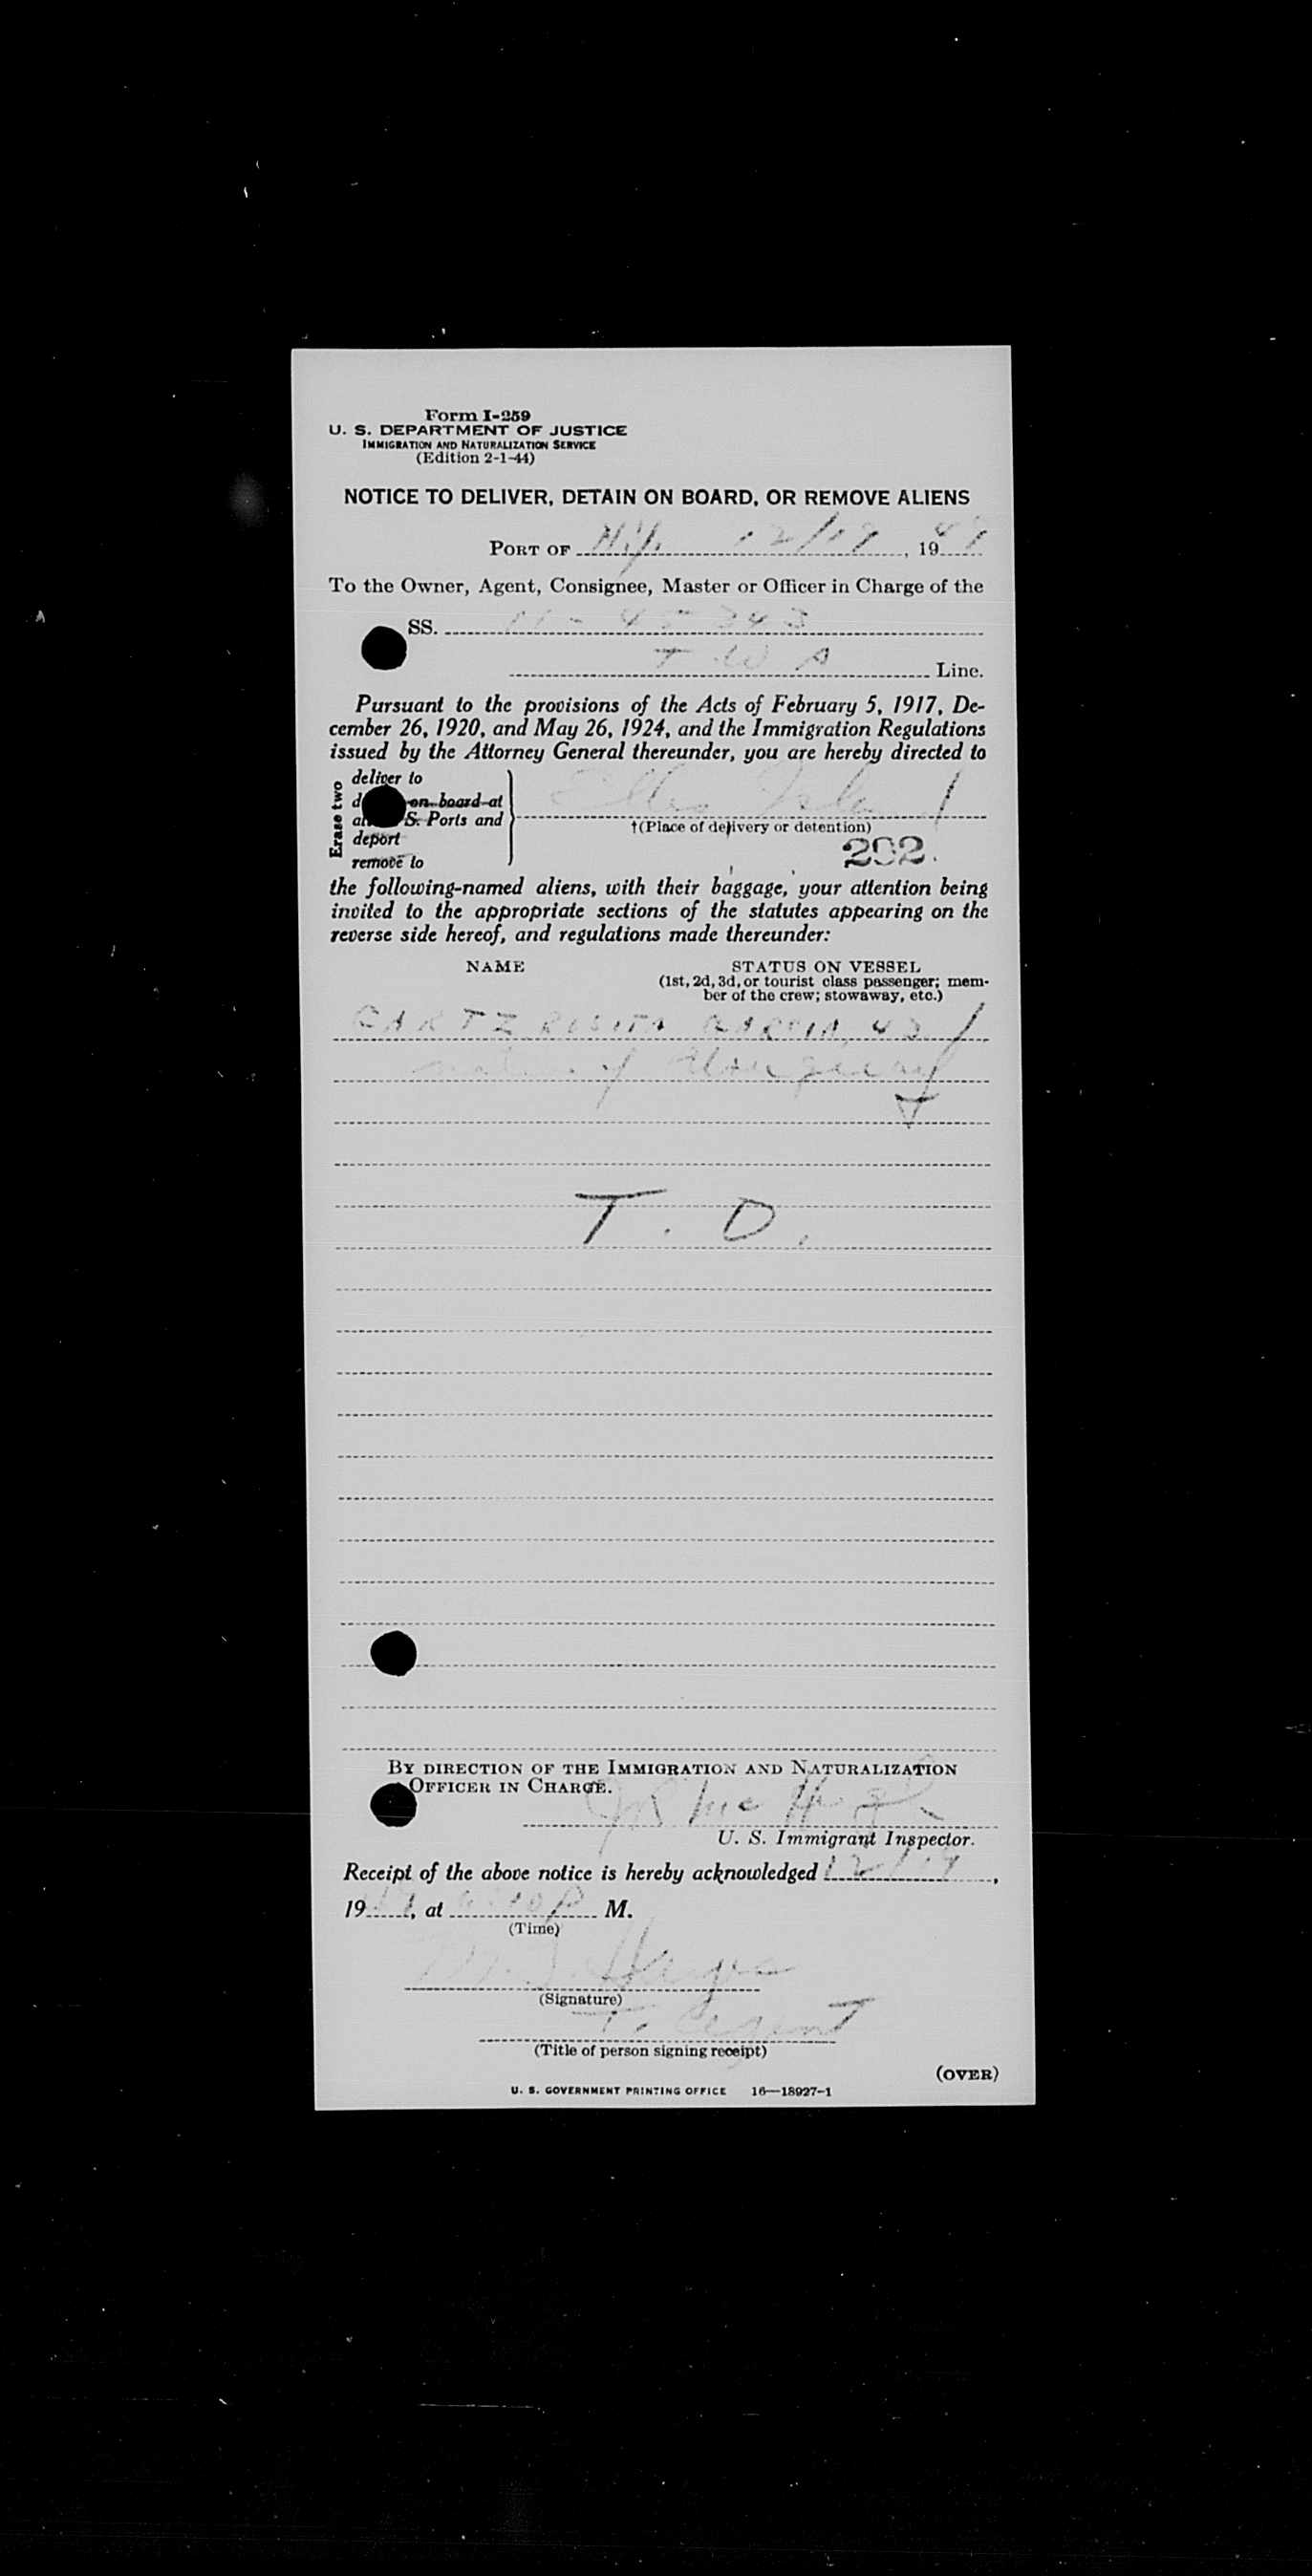 Form I-259
U. S. DEPARTMENT OF JUSTICE
IMMIGRATION AND NATURALIZATION SERVICE
(Edition 2-1-44)
NOTICE TO DELIVER, DETAIN ON BOARD, OR REMOVE ALIENS
PORT OF N.Y. 12/19, 1949
To the Owner, Agent, Consignee, Master or Officer in Charge of the
SS. 45343
T W A Line.
Pursuant to the provisions of the Acts of February 5, 1917, De-
cember 26, 1920, and May 26, 1924, and the Immigration Regulations
issued by the Attorney General thereunder, you are hereby directed to
Erase two
deliver to
on board at
S. Ports and
deport
remove to
Ellis Isla
†(Place of delivery or detention)
292.
the following-named aliens, with their baggage, your attention being
invited to the appropriate sections of the statutes appearing on the
reverse side hereof, and regulations made thereunder:
NAME STATUS ON VESSEL
(1st, 2d, 3d, or tourist class passenger; mem-
ber of the crew; stowaway, etc.)
GARCIA 42
of
T. D.
BY DIRECTION OF THE IMMIGRATION AND NATURALIZATION
OFFICER IN CHARGE.
U. S. Immigrant Inspector.
Receipt of the above notice is hereby acknowledged 12/19,
19, at P M.
(Time)
(Signature)
T. Agent
(Title of person signing receipt)
(OVER)
U. S. GOVERNMENT PRINTING OFFICE 16—18927-1